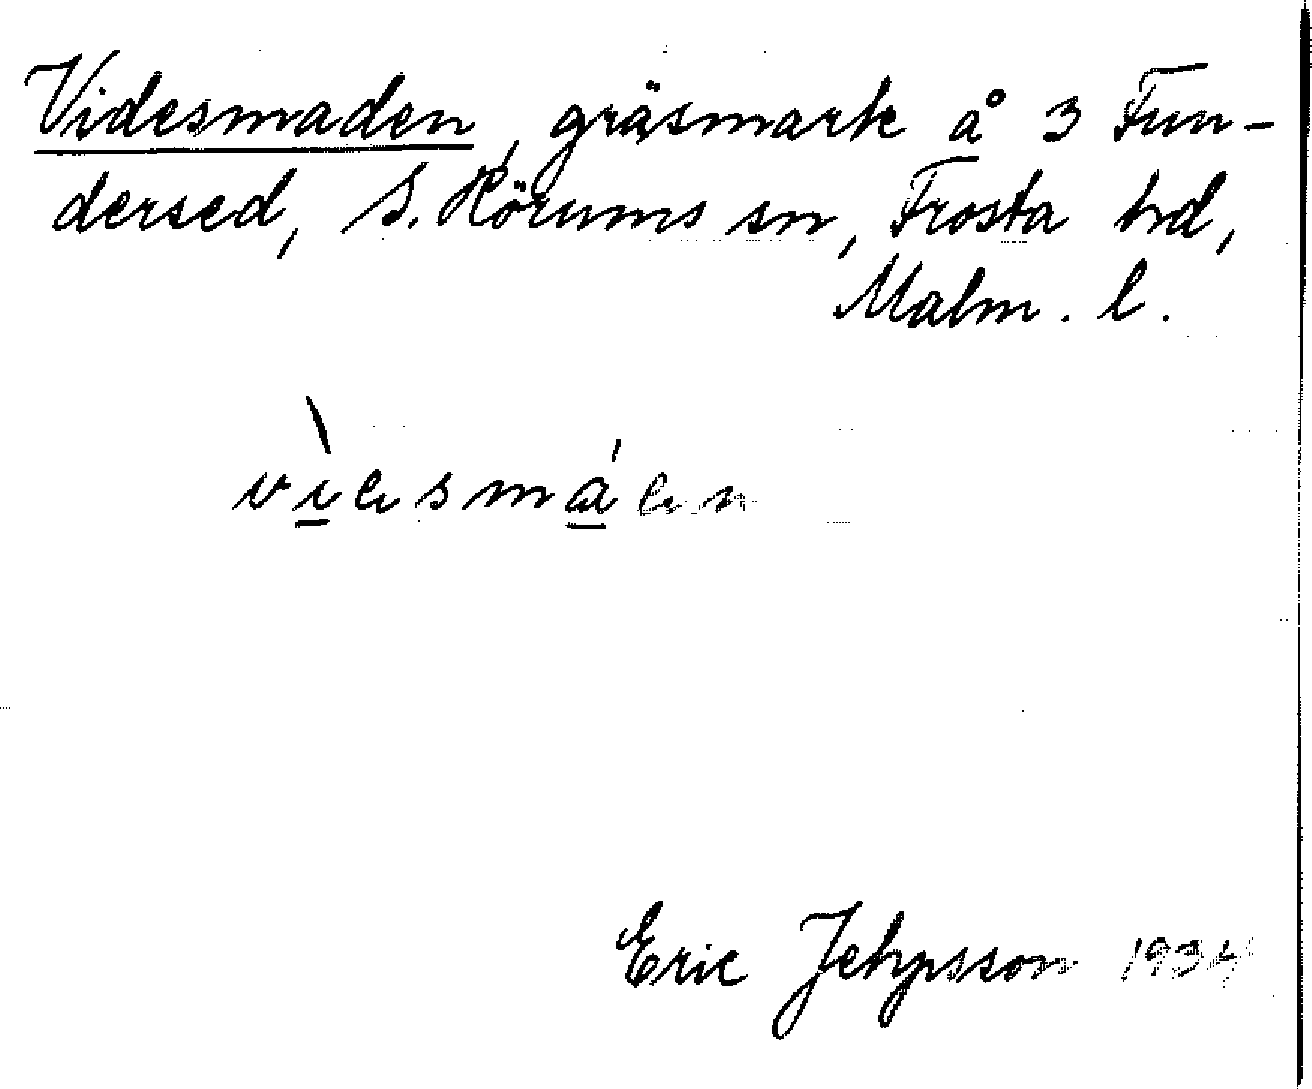 Videsmaden, gräsmark å 3 Fun-
dersed, S. Hörums sn, Frosta hd,
Malm. l.
Eric Jehpsson 1934